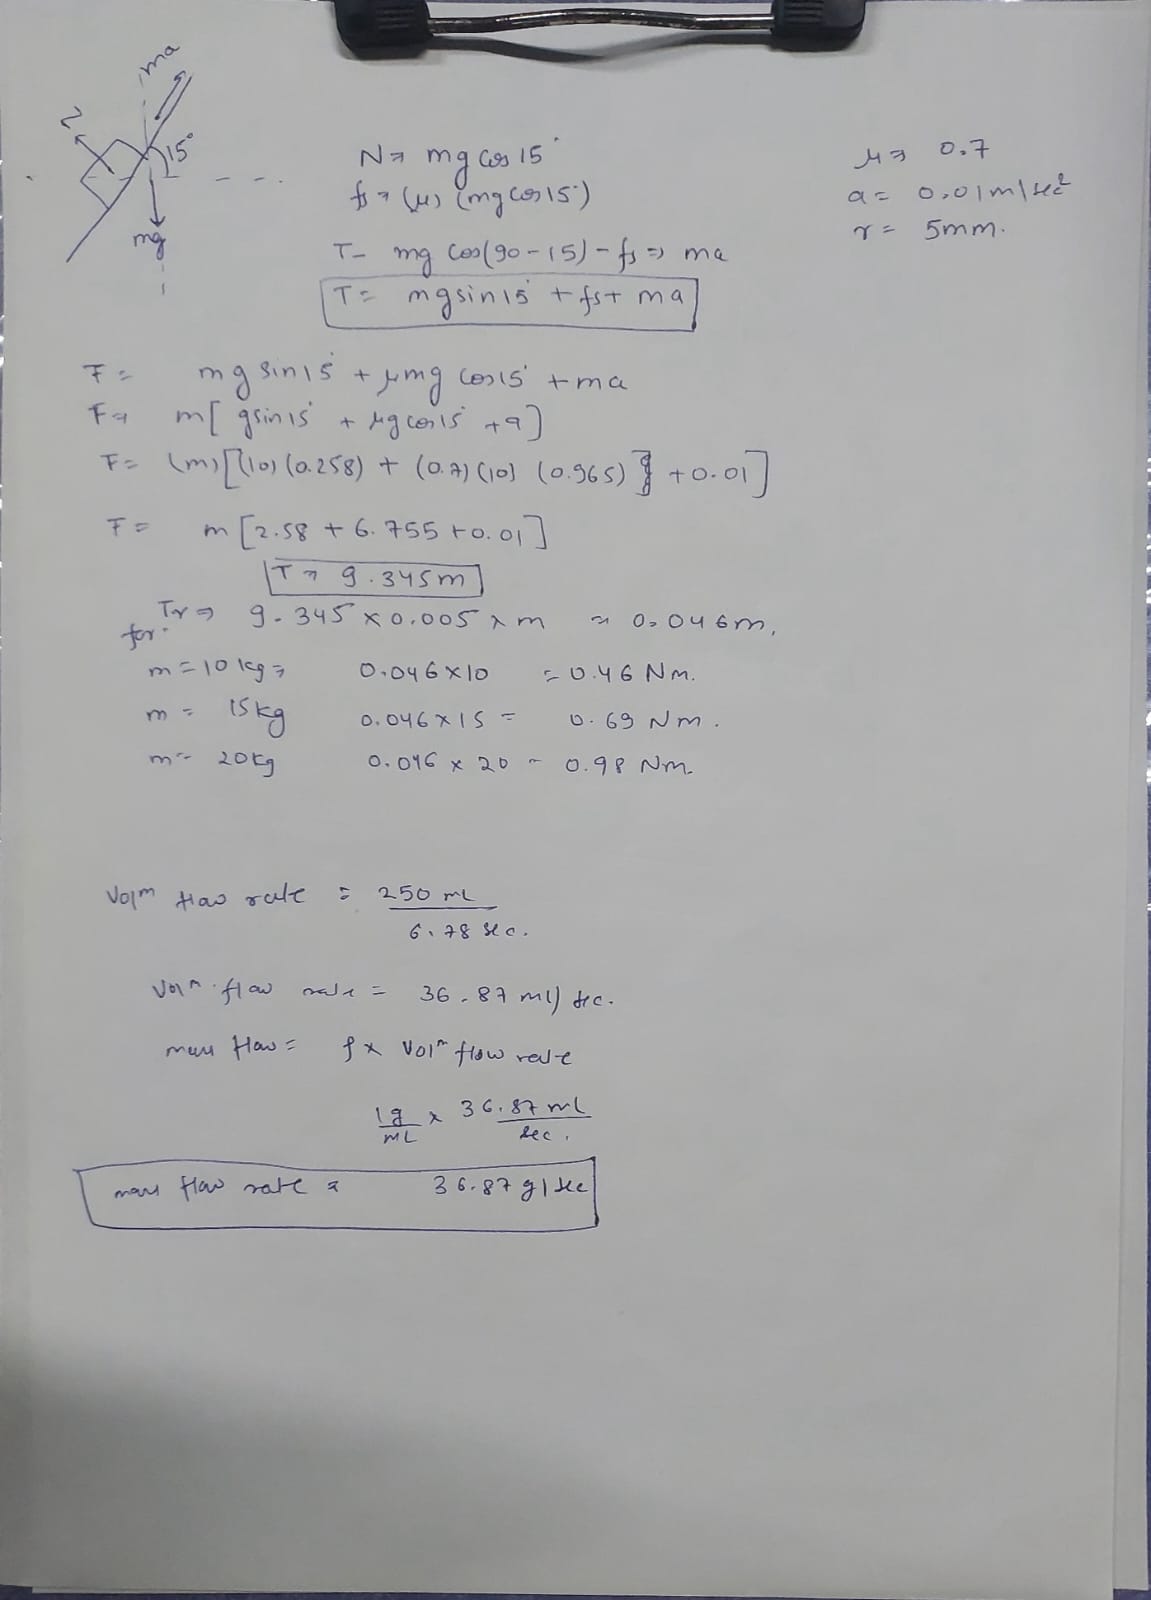 ma
N
15°
mg
N => mg cos 15°
fs => (μ) (mg cos 15°)
T - mg cos(90-15) - fs => ma
T = mg sin 15° + fs + ma
μ => 0.7
a = 0.01 m/sec²
r = 5mm.
F = mg sin 15° + μmg cos 15° + ma
F => m[ g sin 15° + μg cos 15° + a]
F = (m)[(10)(0.258) + (0.7)(10) (0.965)} + 0.01]
F = m[2.58 + 6.755 + 0.01]
T => 9.345m
Tr => 9.345 x 0.005 x m ≈ 0.046m,
for
m = 10 kg => 0.046 x 10 = 0.46 Nm.
m = 15kg 0.046 x 15 = 0.69 Nm.
m = 20kg 0.046 x 20 = 0.98 Nm.
Volm flow rate = 250 mL
6.78 sec.
Volm flow rate = 36.87 ml/sec.
mass flow = ρ x Volm flow rate
1g x 36.87 mL
mL sec.
mass flow rate = 36.87 g/sec